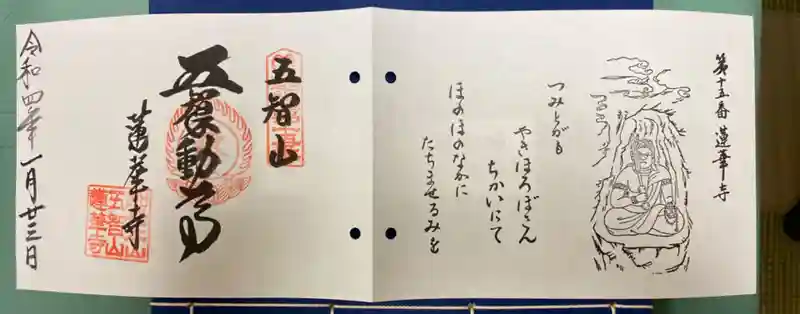 第十五番 蓮華寺
つみとがも
やきほろぼさん
ちかいにて
ほのほのなかに
たちませるみを
五智山
蓮華寺
令和四年一月廿三日
五智山
蓮華寺